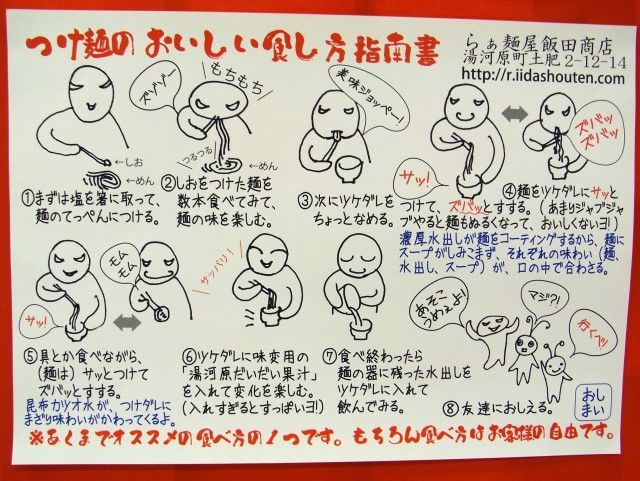 つけ麺の おいしい食し方指南書
らぁ麺屋飯田商店
湯河原町土肥2-12-14
http://r.iidashouten.com/
ズゾゾー
もちもち
つるつる
←しお
←めん
←めん
美味ジョッペー!
サッ!
ズバッ
ズバッ
①まずは塩を箸に取って、
麺のてっぺんにつける。
②しおをつけた麺を
数本食べてみて、
麺の味を楽しむ。
③次にツケダレを
ちょっとなめる。
④麺をツケダレにサッと
つけて、ズバッとすする。(あまりジャブジャ
ブやると麺もぬるくなって、おいしくないヨ!)
濃厚水出しが麺をコーティングするから、麺に
スープがしみこまず、それぞれの味わい(麺、
水出し、スープ)が、口の中で合わさる。
サッ!
モム
モム
サッパリ!
あそこ
うめぇよ!
マジ?!
行くべッ
⑤具とか食べながら、
(麺は)サッとつけて
ズバッとすする。
昆布カツオ水が、つけダレに
まざり味わいがかわってくるよ。
⑥ツケダレに味変用の
「湯河原だいだい果汁」
を入れて変化を楽しむ。
(入れすぎるとすっぱいヨ!)
⑦食べ終わったら
麺の器に残った水出しを
ツケダレに入れて
飲んでみる。
⑧友達におしえる。
おし
まい
※あくまでオススメの食べ方の1つです。もちろん食べ方はお客様の自由です。